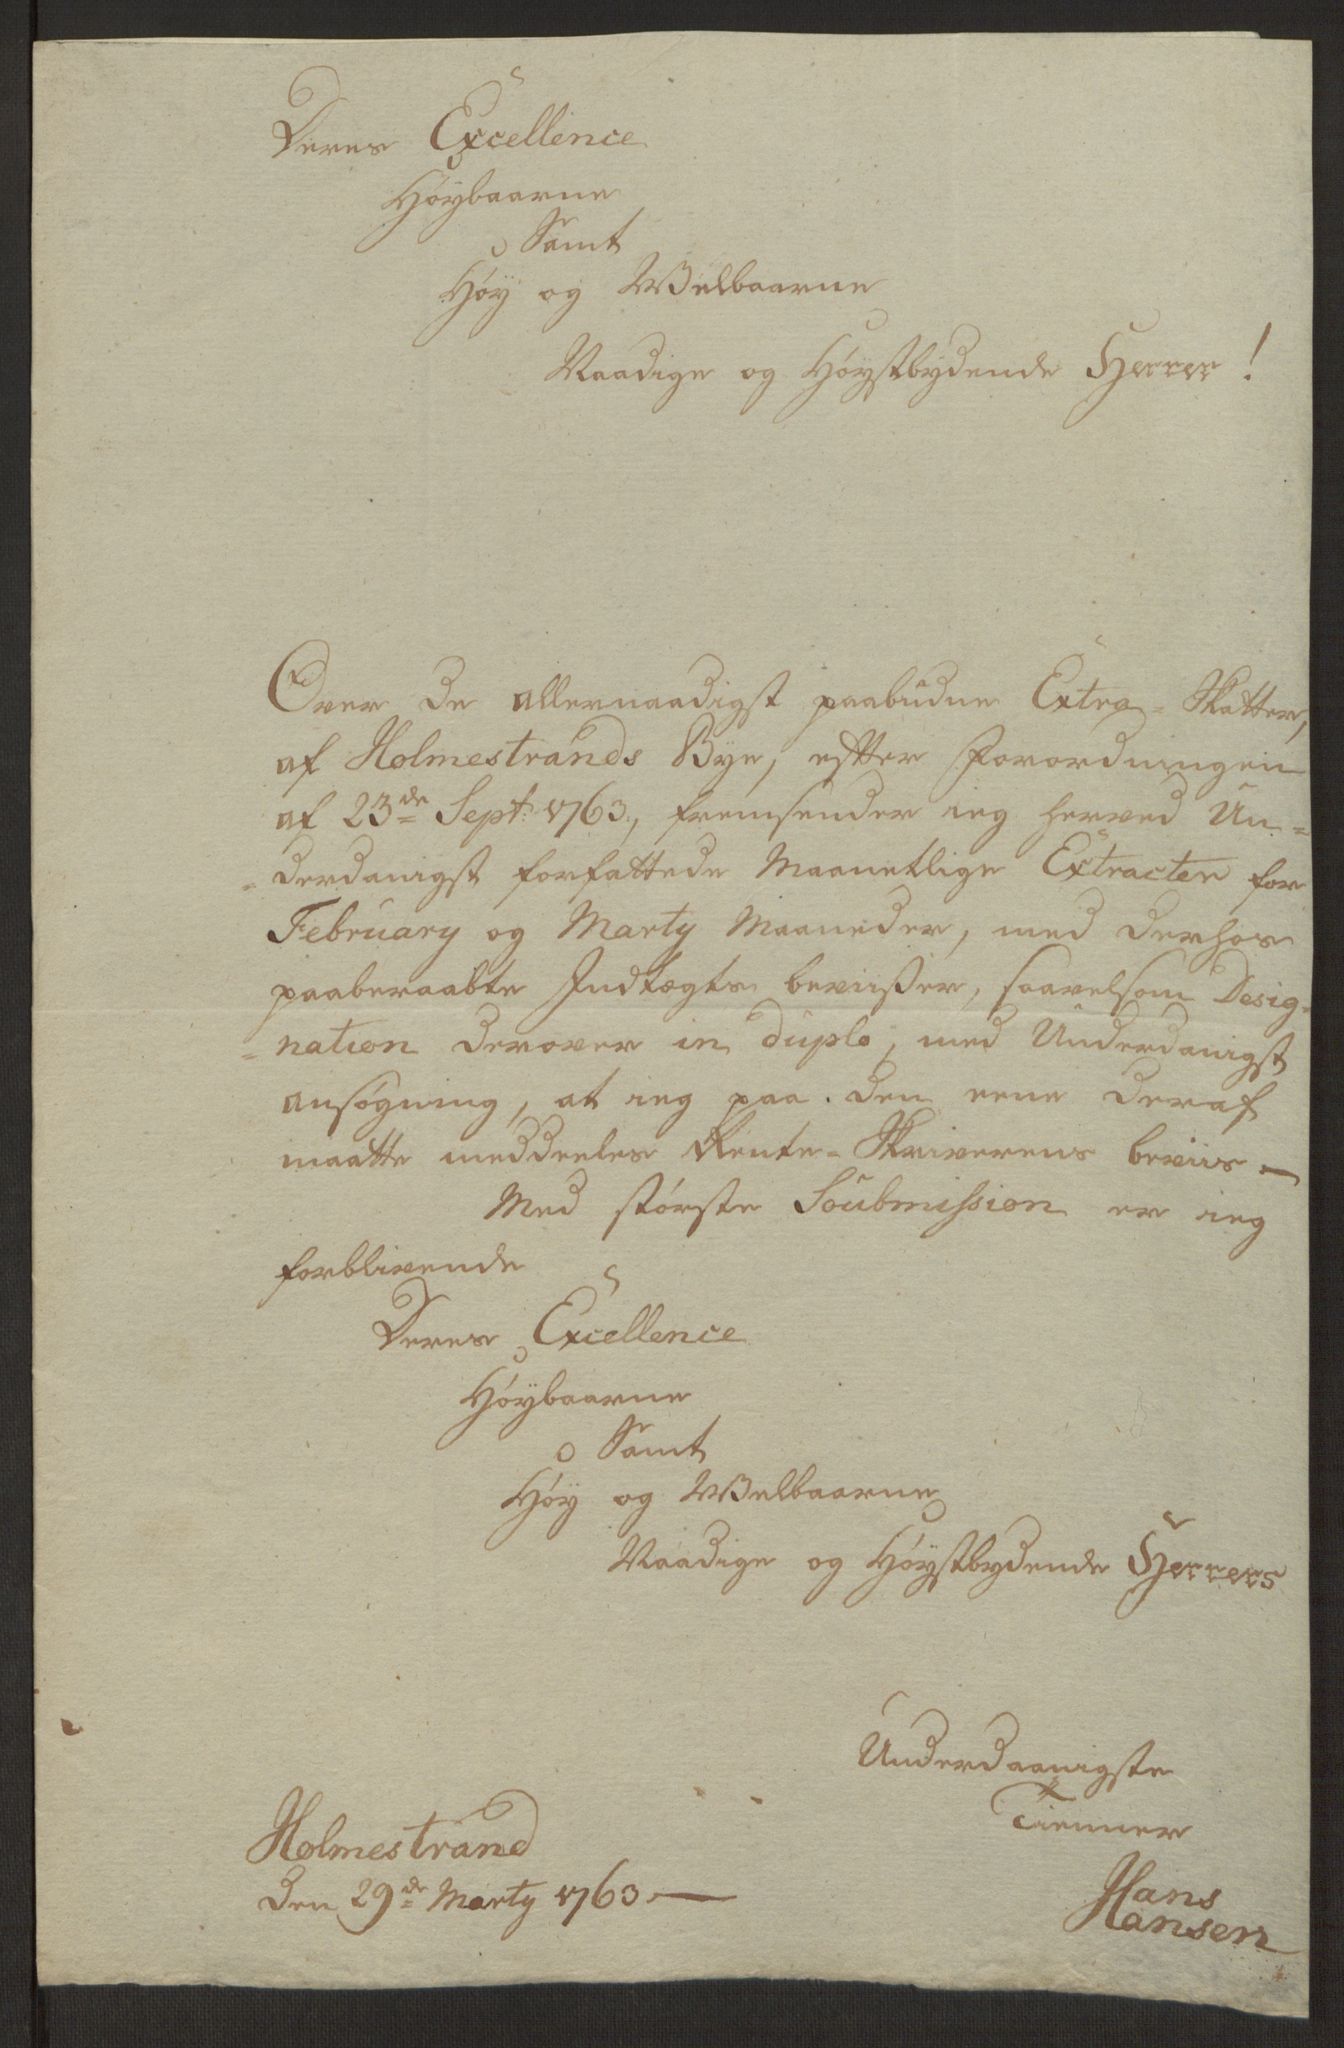 Deres Excellence
Høybaarne
Samt
Høy og Welbaarne
Naadige og Høystbydende Herrer!
Over de allernaadigst paabudne Extra-Skatter,
af Holmestrands Bye, efter Forordningen
af 23de Sept: 1763, fremsender ieg herved Un=
=derdanigst forfattede Maanetlige Extracter for
February og Marty Maaneder, med derhos
paaberaabte Indtægts beviißer, saavelsom Desig=
=nation derover in duplo, med Underdanigst
ansøgning, at ieg paa den eene deraf
maatte meddeeles Rente-Skriverens beviis —
Med største Soubmission er ieg
forblivende
Deres Excellence
Høybaarne
Samt
Høy og Welbaarne
Naadige og Høystbydende Herrers
Underdaanigste
Tienner
Holmestrand
den 29de Marty 1763 —
Hans
Hansen